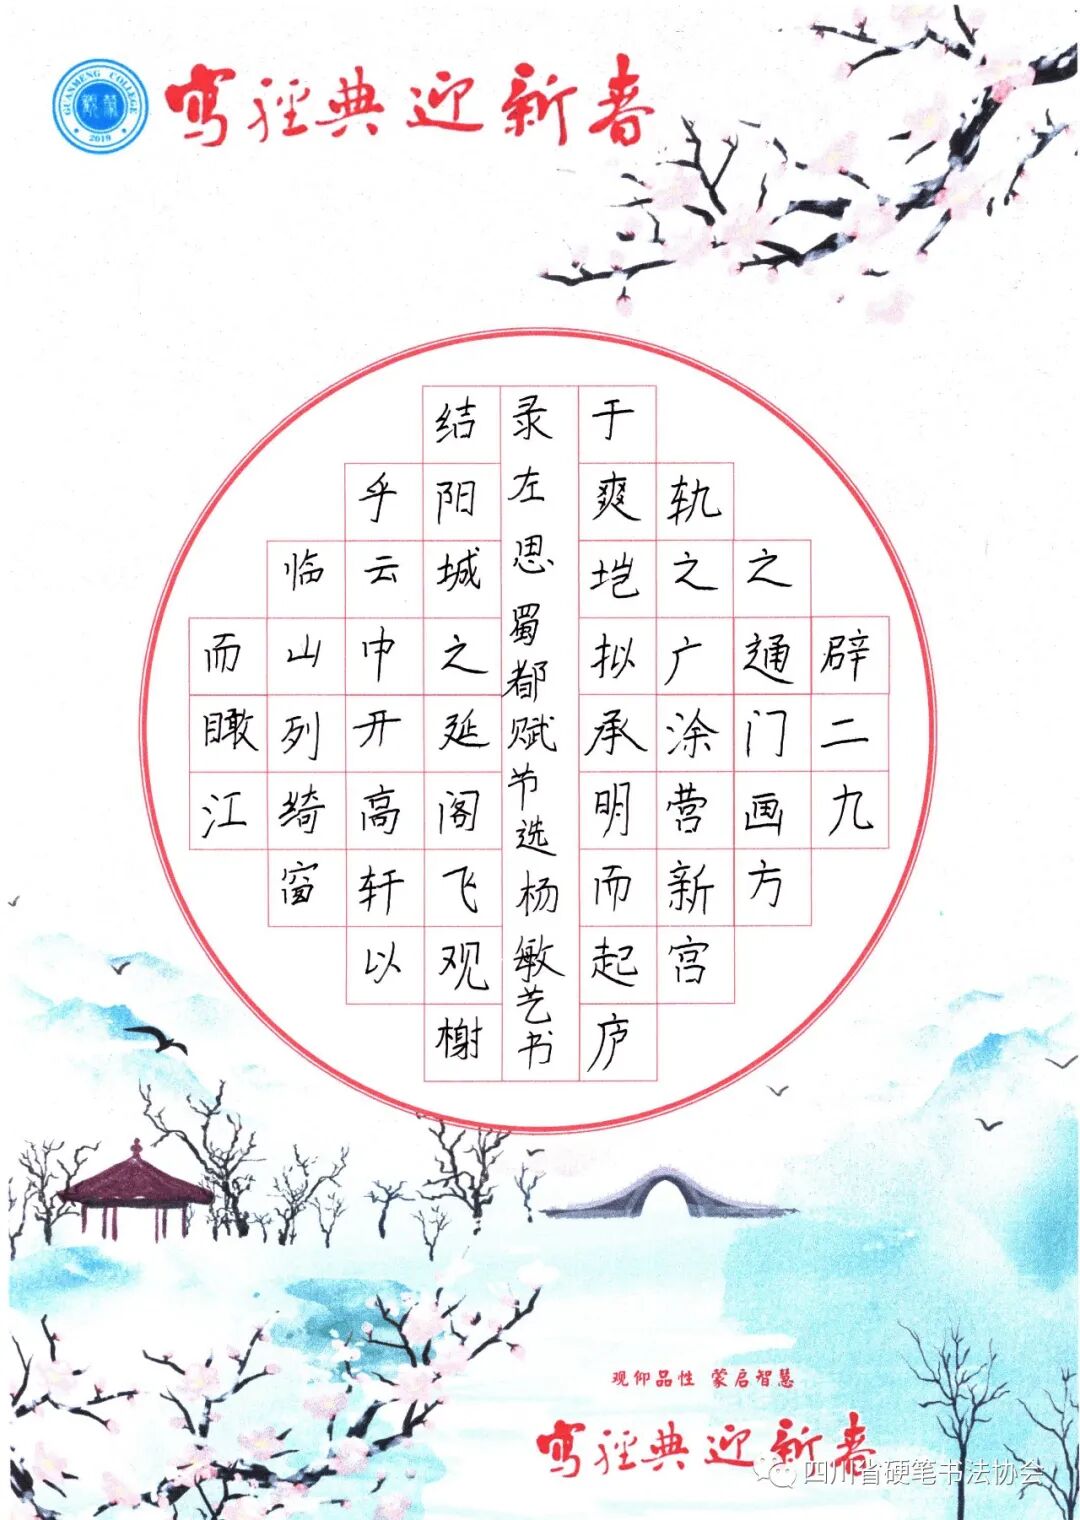 GUANMENG COLLEGE
观蒙
2019
寫經典迎新春
辟二九
之通门画方
轨之广涂营新宫
于爽垲拟承明而起庐
结阳城之延阁飞观榭
乎云中开高轩以
临山列绮窗
而瞰江
录左思蜀都赋节选杨敏艺书
观仰品性 蒙启智慧
寫經典迎新春
四川省硬笔书法协会